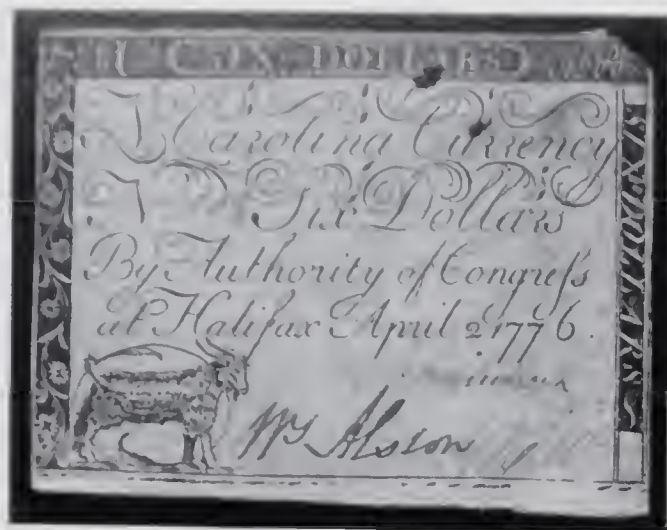 SIX DOLLARS
N Carolina Currency
Six Dollars
By Authority of Congreſs
at Halifax April 2 1776.
Wm Alston
SIX DOLLARS